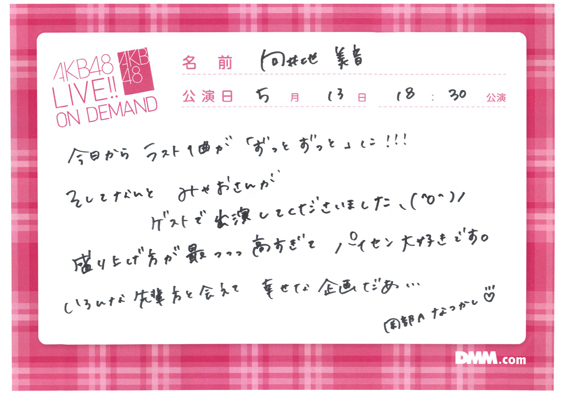 AKB48
LIVE!!
ON DEMAND
AKB
48
名 前 向井地 美音
公演日 5 月 13 日 18 : 30 公演
今日から ラスト1曲が「ずっと ずっと」に!!!
そしてなんと みゃおさんが
ゲストで出演してくださいました、(^o^)ノ
盛り上げ方が最っっっ高すぎて パイセン大好きです。
いろんな先輩方と会えて 幸せな企画だぁ...
岡部A なつかし♡
DMM.com